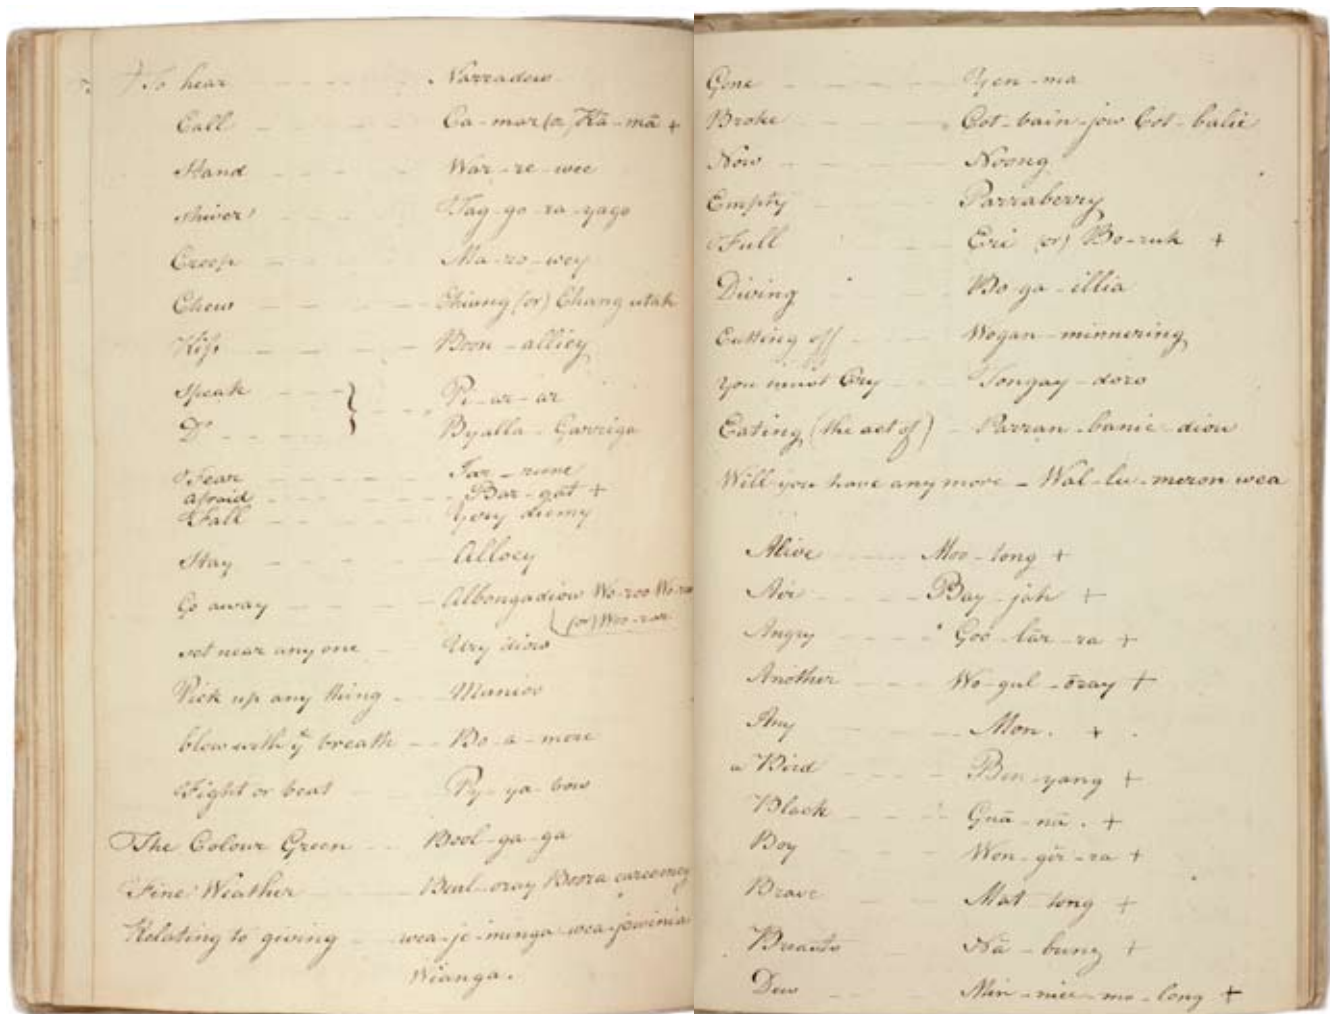 To hear Narradow
Call Ca-mar (or) Kā-mā +
Stand War-re-wee
shiver Tag-go-ra-yago
Creep Ma-ro-wey
Chew Chiang (or) Chang utah
Kiſs Boon-alliey
Speak Pi-ar-ar
Do Byalla-Garriga
Fear Jar-rune
afraid Bar-gat +
Fall Yory diemy
Stay Alloey
Go away Albongadiow Wo-roo Wo-roo
(or) Woo-rar
set near any one Ury diow
Pick up any thing Manioo
blow with ye breath Bo-a-mere
Fight or beat Py-ya-bow
The Colour Green Bool-ga-ga
Fine Weather Beal-oray Boora careemey
Relating to giving wea-je-minga wea-jowinia
Wianga.
Gone Yen-ma
Broke Cot-bain-jow Cot-balie
Now Noong
Empty Parraberry
Full Eri (or) Bo-ruk +
Diving Bo-ga-illia
Cutting off Wogan-minnering
you must Cry Tongay-doro
Eating (the act of) Parran-banie-diou
Will you have any more - Wal-lu-meron wea
Alive Moo-tong +
Air Bay-jah +
Angry Goo-lār-ra +
Another Wo-gul-ōray +
Any Mon. +
a Bird Bin-yang +
Black Gnā-nā. +
Boy Won-gēr-ra +
Brave Mat-tong +
Breasts Nā-bung +
Dew Min-niee-mo-long +